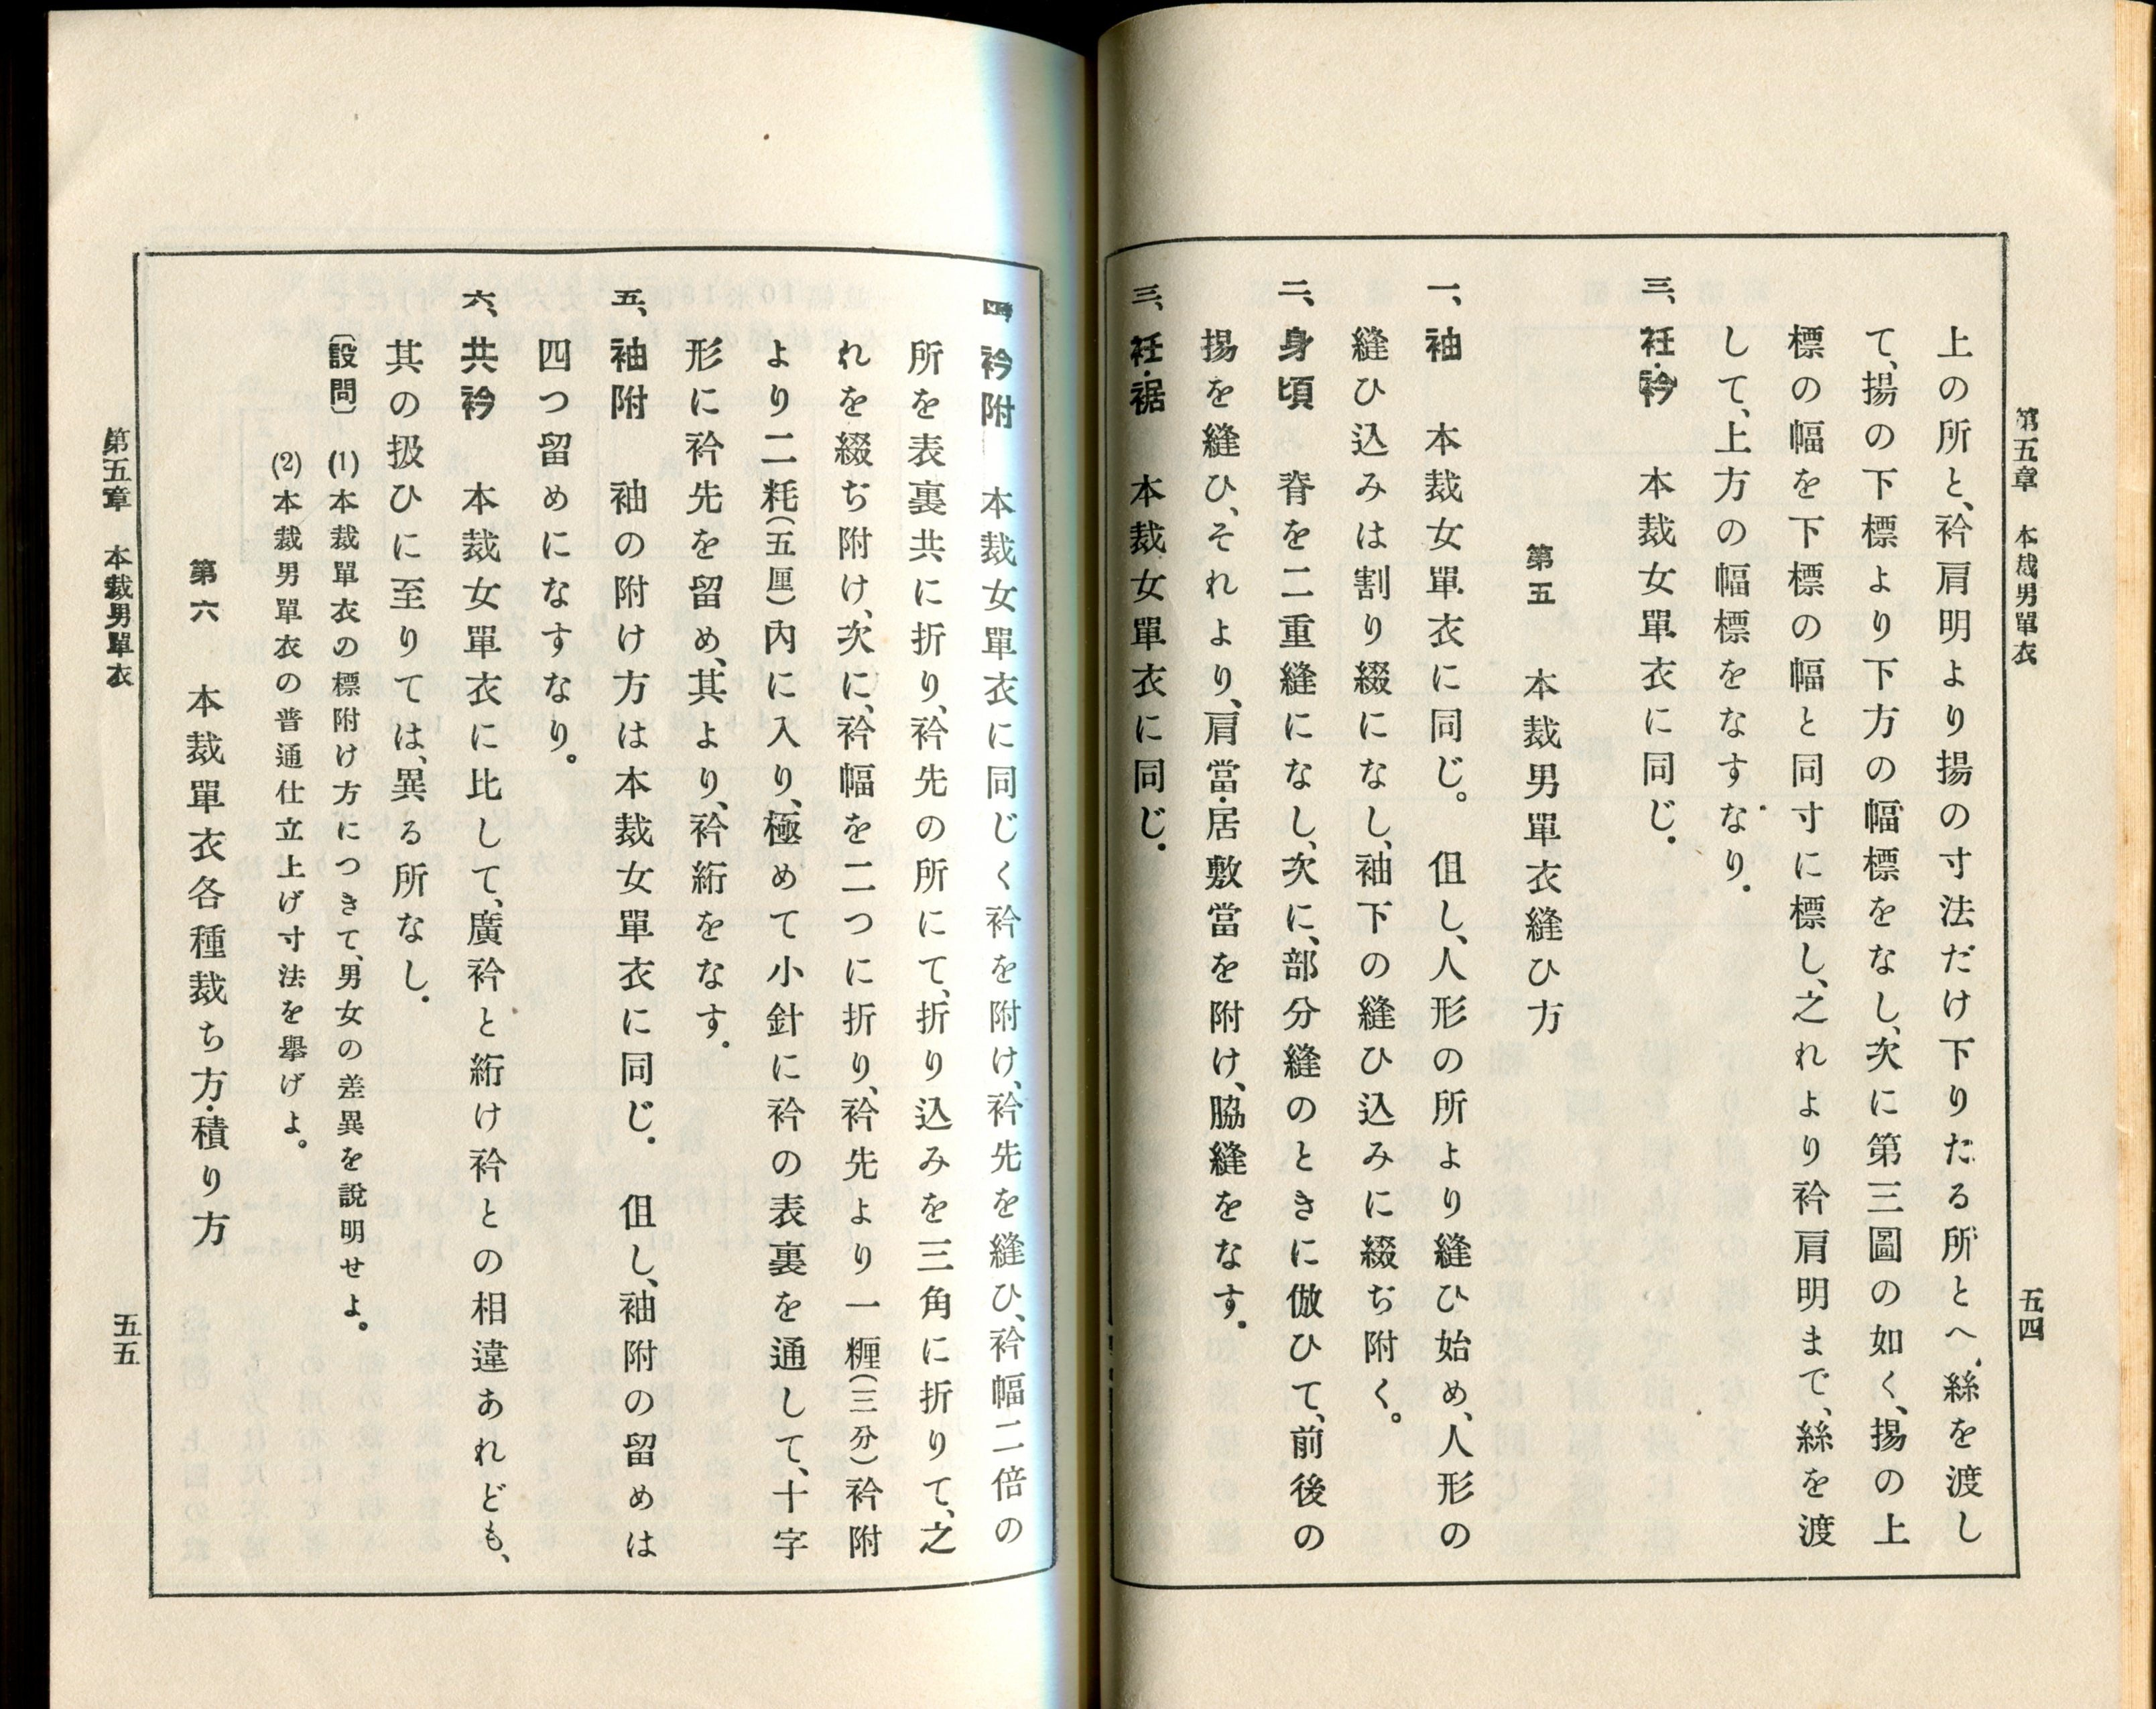 第五章　本裁男單衣
五四
上の所と、衿肩明より揚の寸法だけ下りたる所とへ、絲を渡し
て、揚の下標より下方の幅標をなし、次に第三圖の如く、揚の上
標の幅を下標の幅と同寸に標し、之れより衿肩明まで、絲を渡
して、上方の幅標をなすなり。
三、衽・衿　本裁女單衣に同じ。
第五　本裁男單衣縫ひ方
一、袖　本裁女單衣に同じ。　但し、人形の所より縫ひ始め、人形の
縫ひ込みは割り綴になし、袖下の縫ひ込みに綴ぢ附く。
二、身頃　脊を二重縫になし、次に、部分縫のときに倣ひて、前後の
揚を縫ひ、それより、肩當・居敷當を附け、脇縫をなす。
三、衽・裾　本裁女單衣に同じ。
四、衿附　本裁女單衣に同じく衿を附け、衿先を縫ひ、衿幅二倍の
所を表裏共に折り、衿先の所にて、折り込みを三角に折りて、之
れを綴ぢ附け、次に、衿幅を二つに折り、衿先より一糎(三分)衿附
より二粍(五厘)內に入り、極めて小針に衿の表裏を通して、十字
形に衿先を留め、其より、衿絎をなす。
五、袖附　袖の附け方は本裁女單衣に同じ。　但し、袖附の留めは
四つ留めになすなり。
六、共衿　本裁女單衣に比して、廣衿と絎け衿との相違あれども、
其の扱ひに至りては、異る所なし。
〔設問〕　(1)本裁單衣の標附け方につきて、男女の差異を說明せよ。
(2)本裁男單衣の普通仕立上げ寸法を擧げよ。
第六　本裁單衣各種裁ち方・積り方
第五章　本裁男單衣
五五